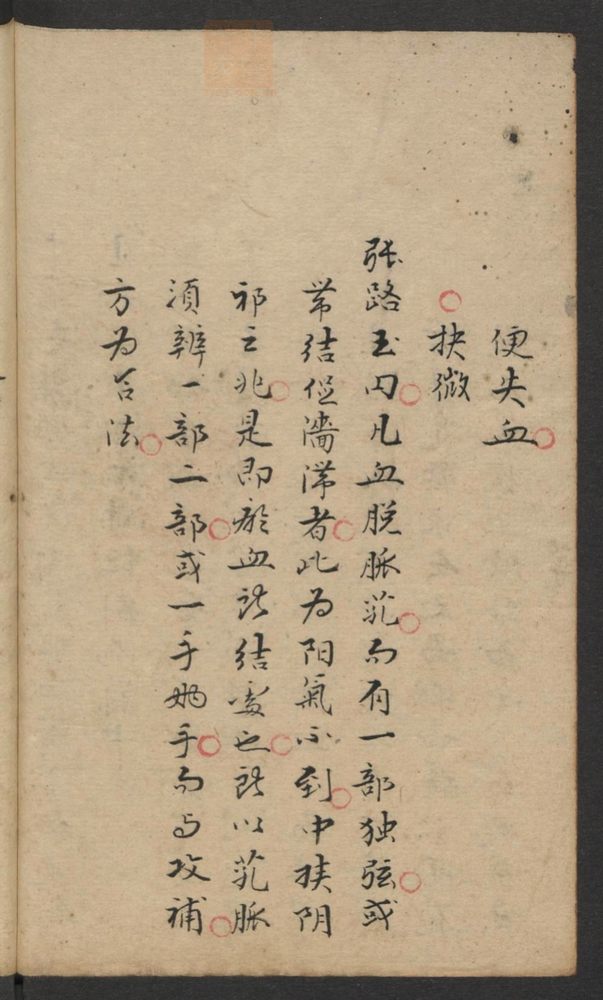 便失血
抉微
张路玉曰凡血脱脈芤而有一部独弦或
带结促濇滞者此为阳氣不到中挟阴
邪之兆是即瘀血所结處也所以芤脈
須辨一部二部或一手两手而与攻補
方为合法